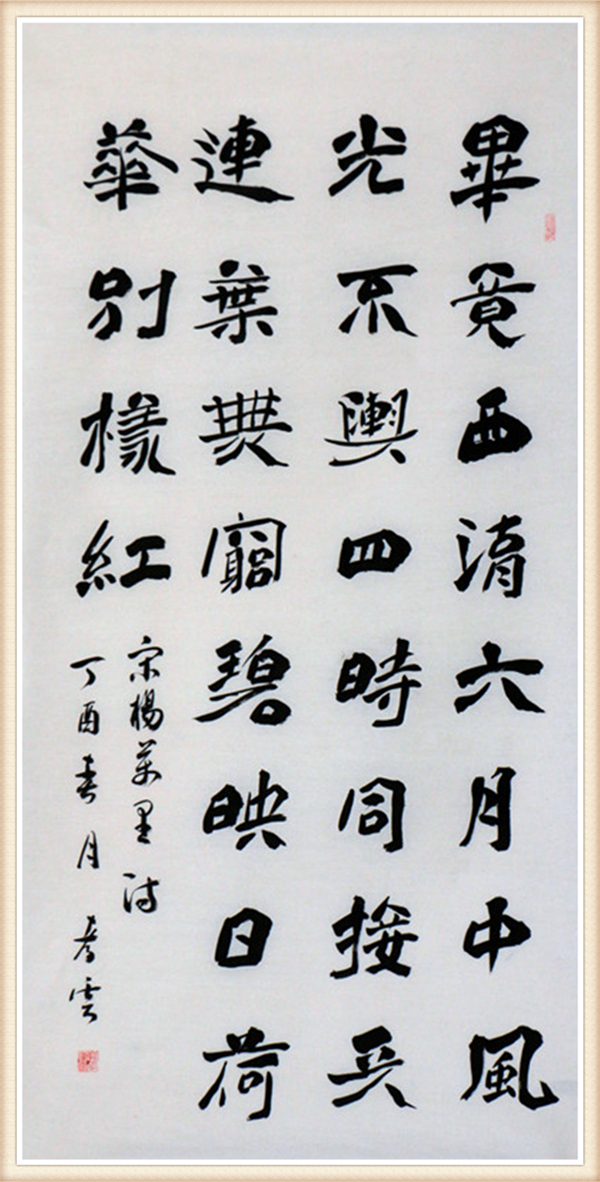 畢竟西湖六月中風
光不與四時同接天
連葉無窮碧映日荷
華別樣紅
宋楊萬里詩
丁酉春月 雲